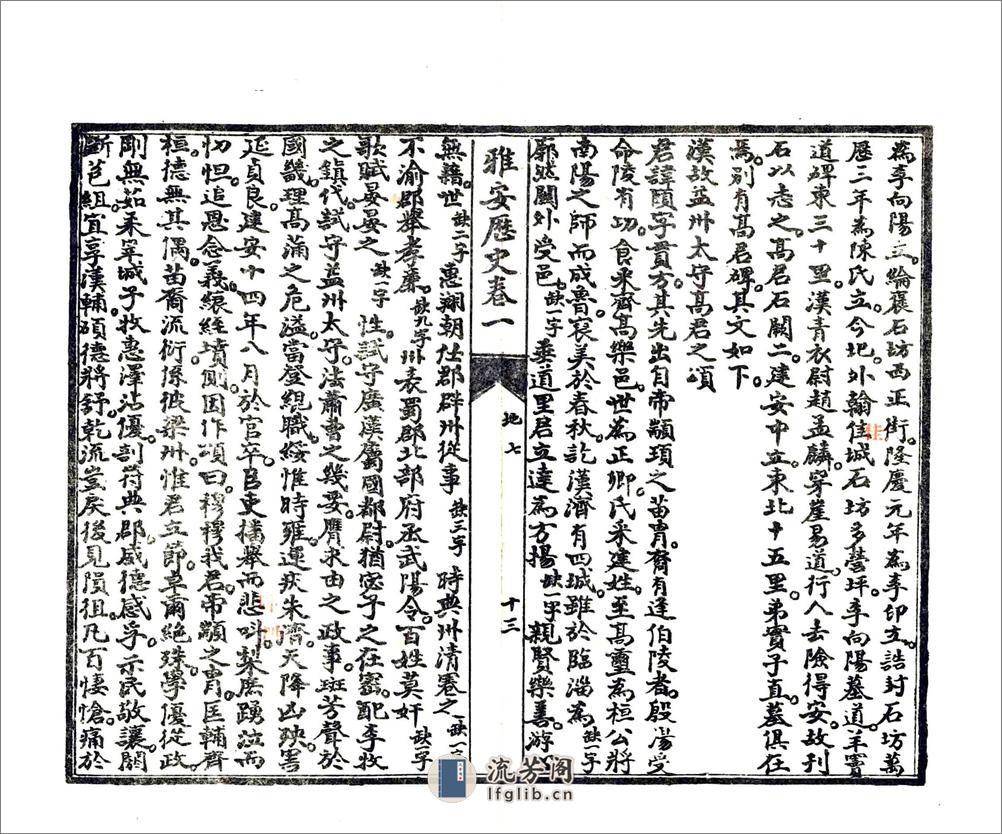 為李向陽立綸褒石坊西正街隆慶元年為李印立誥封石坊萬
歷三年為陳氏立今圮外翰佳城石坊多營坪李向陽墓道羊竇
道碑東三十里漢青衣尉趙孟麟穿崖易道行人去險得安故刊
石以志之高君石闕二建安中立東北十五里弟實子直墓俱在
焉別有高君碑其文如下
漢故益州太守高君之頌
君諱頤字貫方其先出自帝顓頊之苗胄裔有逢伯陵者殷湯受
命陵有功食采齊高樂邑世為正卿氏采建姓至高璽為桓公將
南陽之師而成魯襃美於春秋訖漢濟有四城雖於臨淄為缺一字
郭然闕外受邑缺一字垂道里君立達為方揚缺一字親賢樂善游心
雅安歷史卷一
地七
十三
無藉世缺二字惠翔朝仕郡辟州從事缺三字時典州清卷之缺一字
不渝郡舉孝廉缺九字州表蜀郡北部府丞武陽令百姓莫奸缺一字
歌賦晏晏之缺一字性試守廣漢屬國都尉猶宓子之在密配李牧
之鎮代試守益州太守法蕭曹之幾要膺求由之政事班芳聲於
國畿理高滿之危溢當登緄職綏惟時雍運疾朱濟天降凶殃署
延貞良建安十四年八月於官卒臣吏播舉而悲叫黎庶踴泣而
忉怛追思念義縗絰墳側因作頌曰穆穆我君帝顓之胄匡輔齊
桓德無其偶苗裔流衍係彼梁州惟君立節卓爾絕殊學優從政
剛無茹柔宰城子牧惠澤沾優剖符典郡威德感孚示民敬讓閼
斷苞組宜享漢輔碩德將舒乾流豈戾後見隕徂凡百悽愴痛於
流芳閣
lfglib.cn